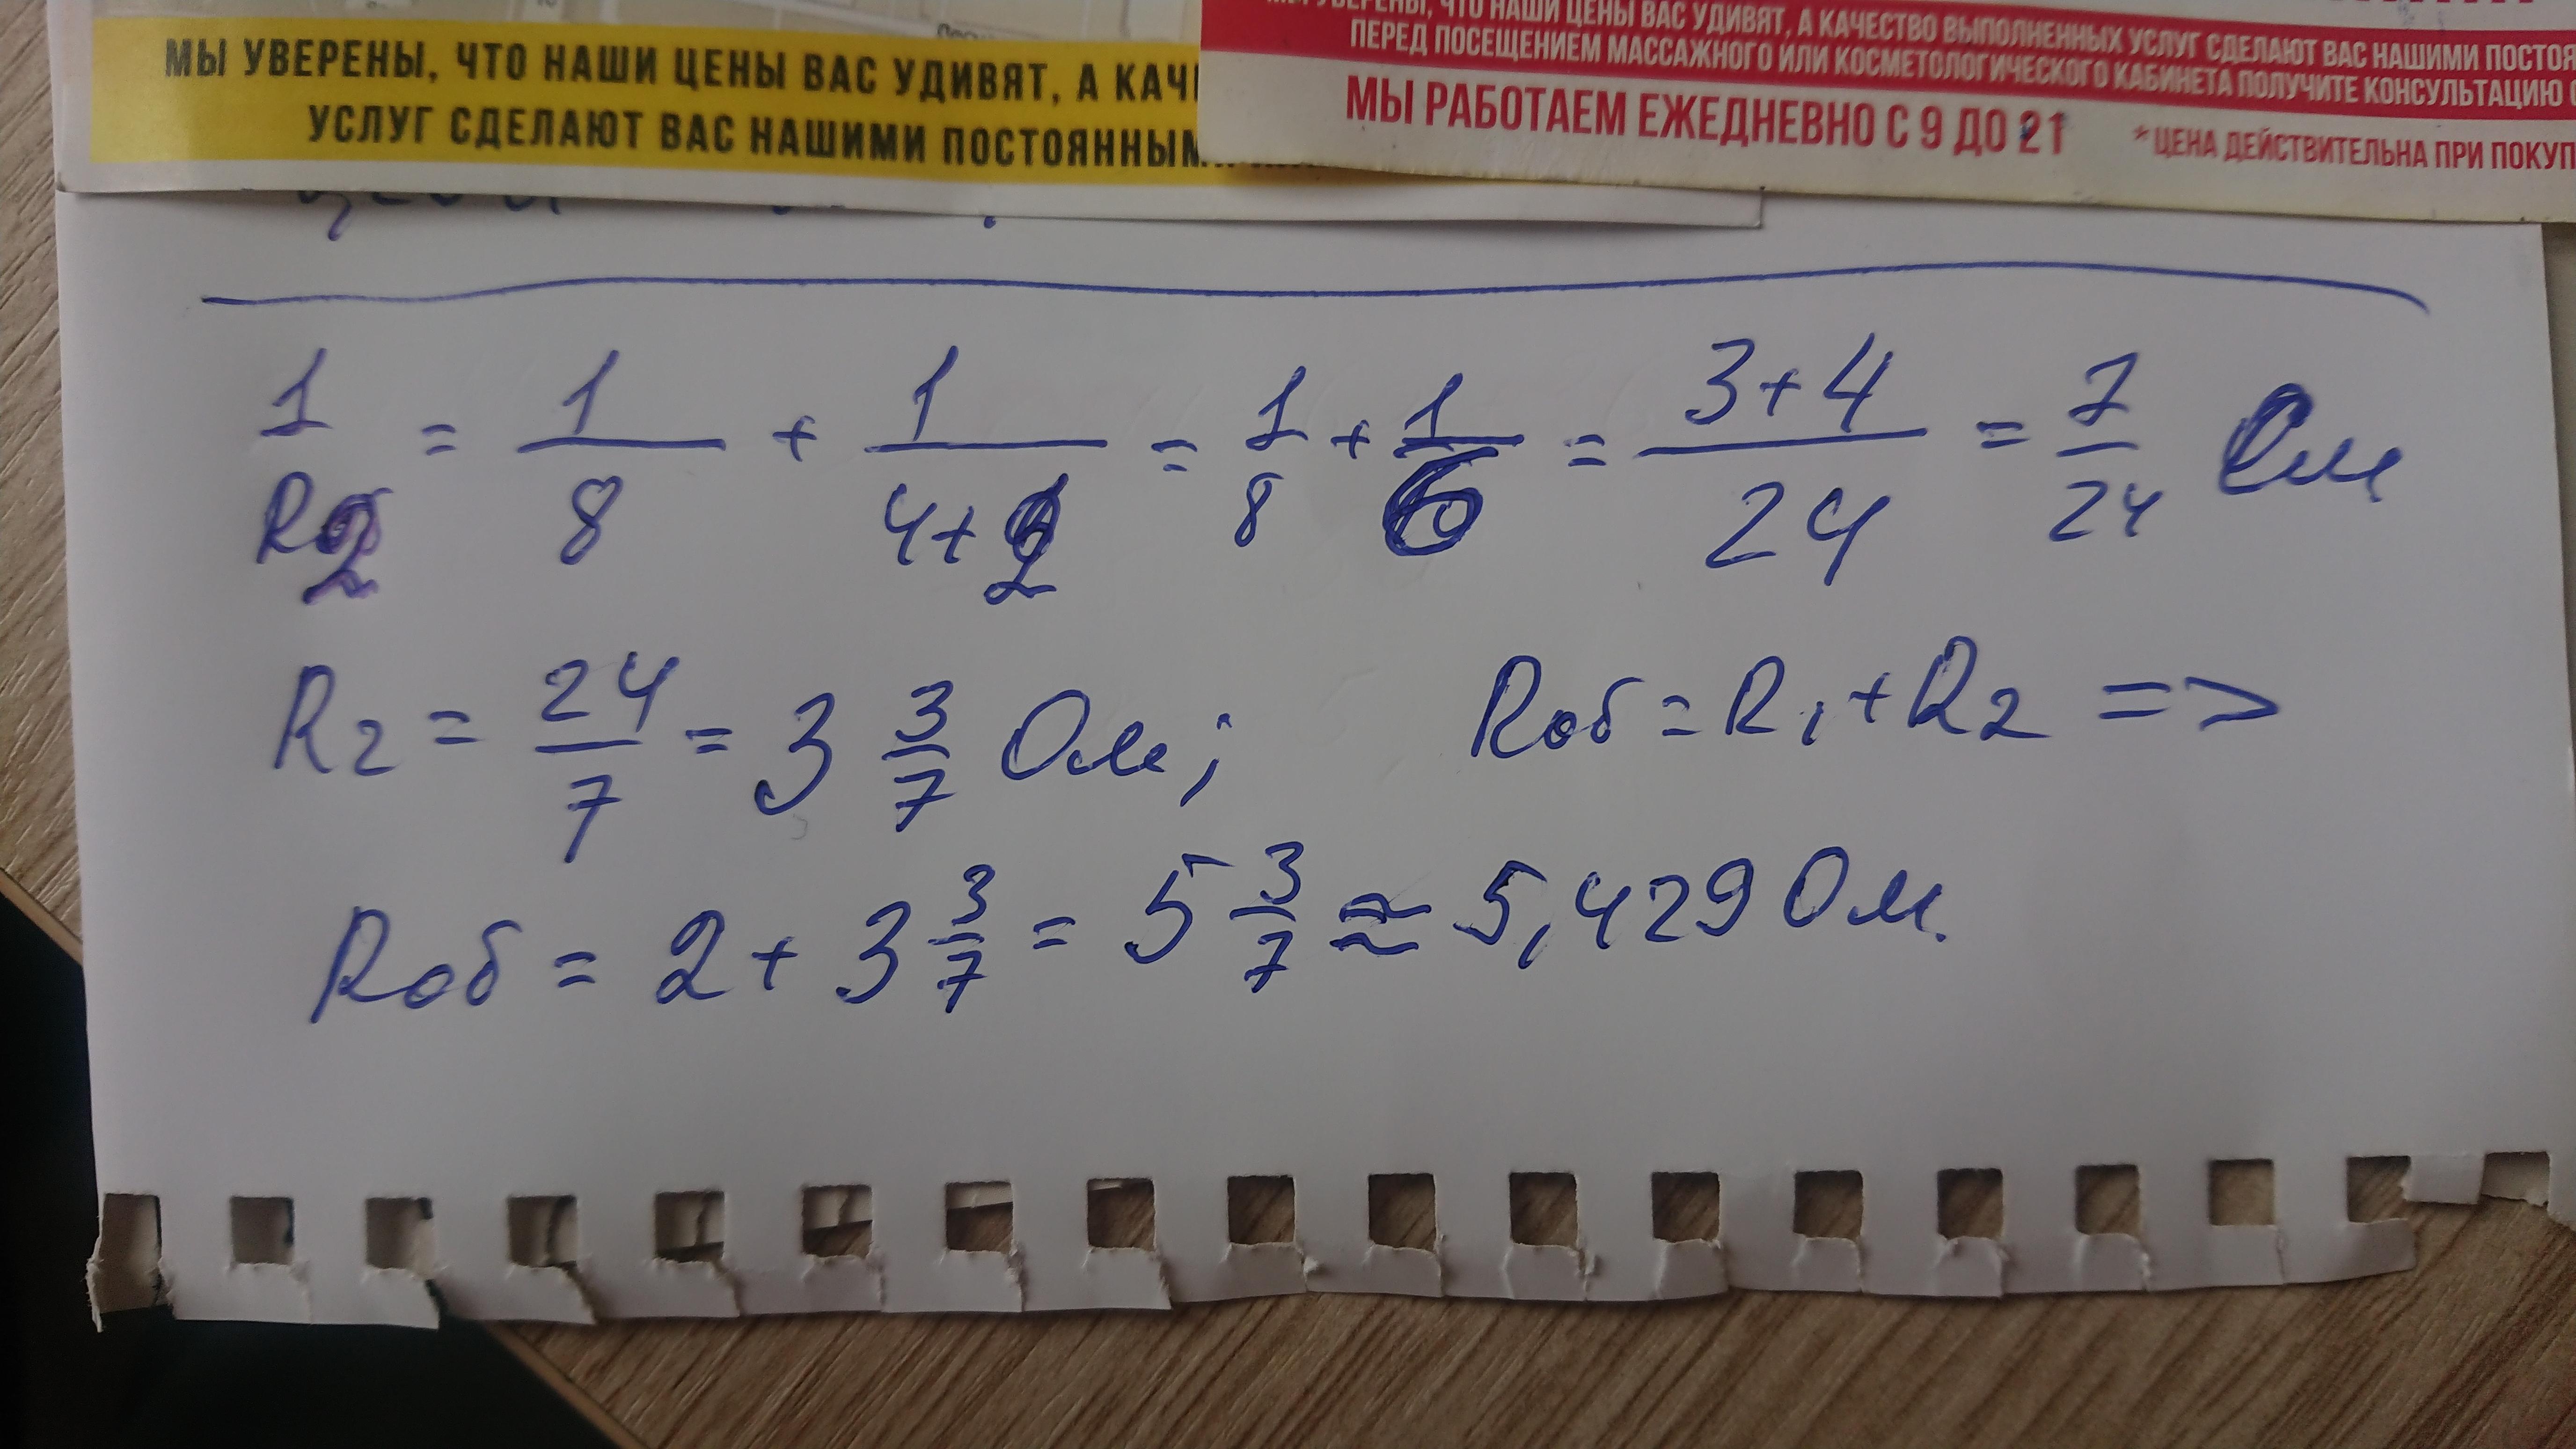 МЫ УВЕРЕНЫ, ЧТО НАШИ ЦЕНЫ ВАС УДИВЯТ, А КАЧ
УСЛУГ СДЕЛАЮТ ВАС НАШИМИ ПОСТОЯННЫМ
МЫ УВЕРЕНЫ, ЧТО НАШИ ЦЕНЫ ВАС УДИВЯТ, А КАЧЕСТВО ВЫПОЛНЕННЫХ УСЛУГ СДЕЛАЮТ ВАС НАШИМИ ПОСТОЯ
ПЕРЕД ПОСЕЩЕНИЕМ МАССАЖНОГО ИЛИ КОСМЕТОЛОГИЧЕСКОГО КАБИНЕТА ПОЛУЧИТЕ КОНСУЛЬТАЦИЮ
МЫ РАБОТАЕМ ЕЖЕДНЕВНО С 9 ДО 21 *ЦЕНА ДЕЙСТВИТЕЛЬНА ПРИ ПОКУП
1/R2 = 1/8 + 1/(4+2) = 1/8 + 1/6 = (3+4)/24 = 7/24 Ом
R2 = 24/7 = 3 3/7 Ом; Rоб = R1 + R2 =>
Rоб = 2 + 3 3/7 = 5 3/7 ≈ 5,429 Ом.